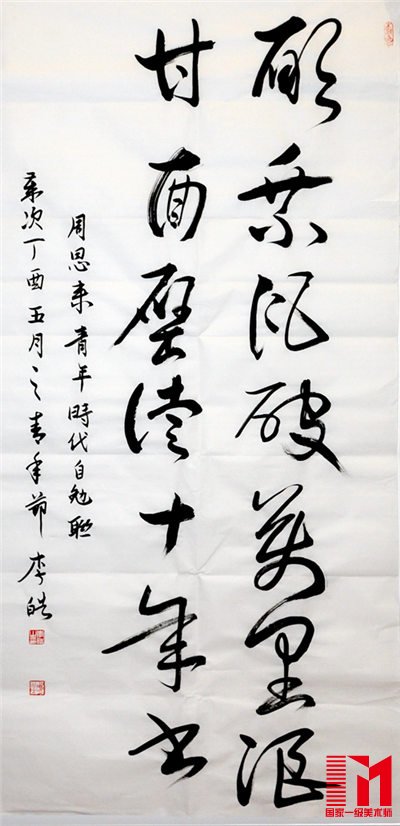 愿乘风破万里浪
甘面壁读十年书
周恩来青年時代自勉聯
岁次丁酉五月之青年節 李皓
国家一级美术师